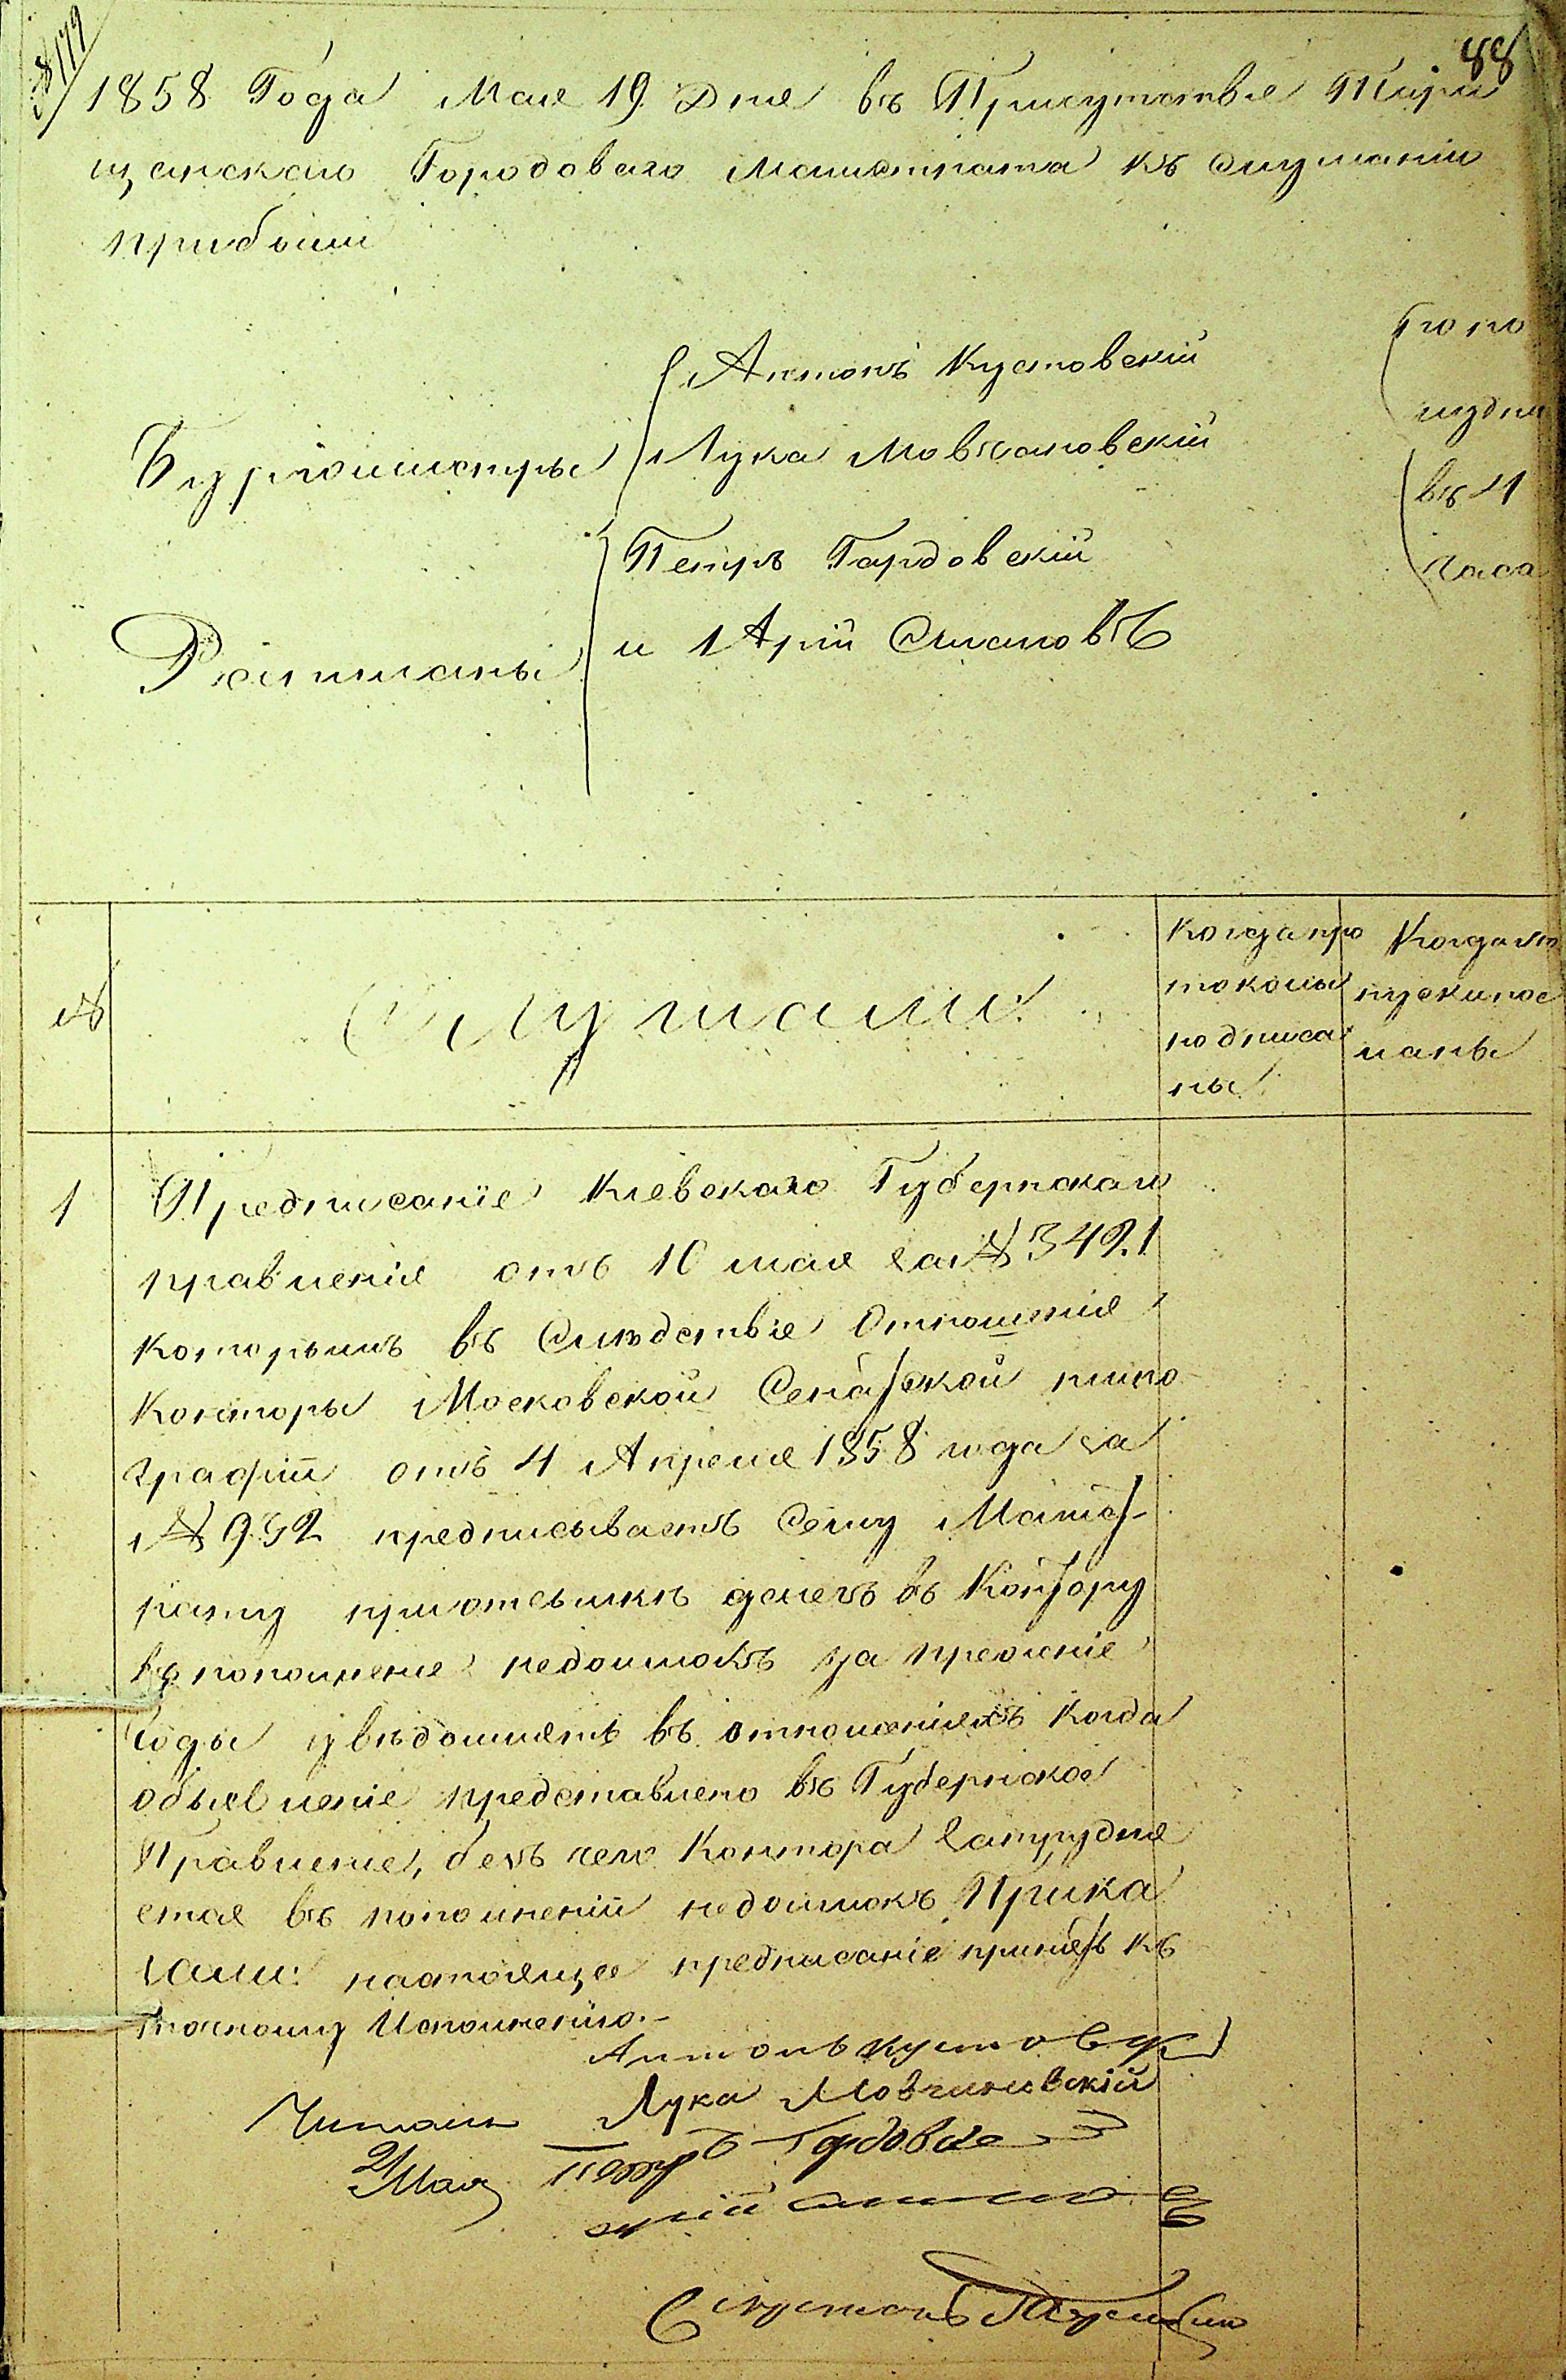 № 179
88
1858 Года Мая 19 Дня въ Присутствіе Тира
щанскаго Городоваго Магистрата къ слушанію
прибыли
Бургомистры
Антонъ Кустовскій
Лука Мовчановскій
по по
лудни
Ратманы
Петръ Гардовскій
и Арій Смаловъ
въ 4
часа
№
Слушали:
Когда про
токолы
подписа
ны
Когда от
пуски пос
ланы
1
Предписаніе Кіевскаго Губернскаго
правленія отъ 10 мая за № 3421
которымъ въ Слѣдствіе Отношенія
Конторы Московской Сенатской типо
графіи отъ 4 Апреля 1858 года за
№ 992 предписываетъ Сему Магист
рату при отсылкѣ денегъ въ Контору
въ пополненіе недоимокъ за прежніе
годы увѣдомлять въ отношеніяхъ когда
объявленіе представлено въ Губернское
Правленіе, безъ чего Контора затрудня
ется въ пополненіи недоимокъ Прика
зали: настоящее предписаніе принять къ
точному Исполненію.–
Антонъ Кустовскій
Лука Мовчановскій
Читалъ
Петръ Гардовскій
21 Мая
Арій